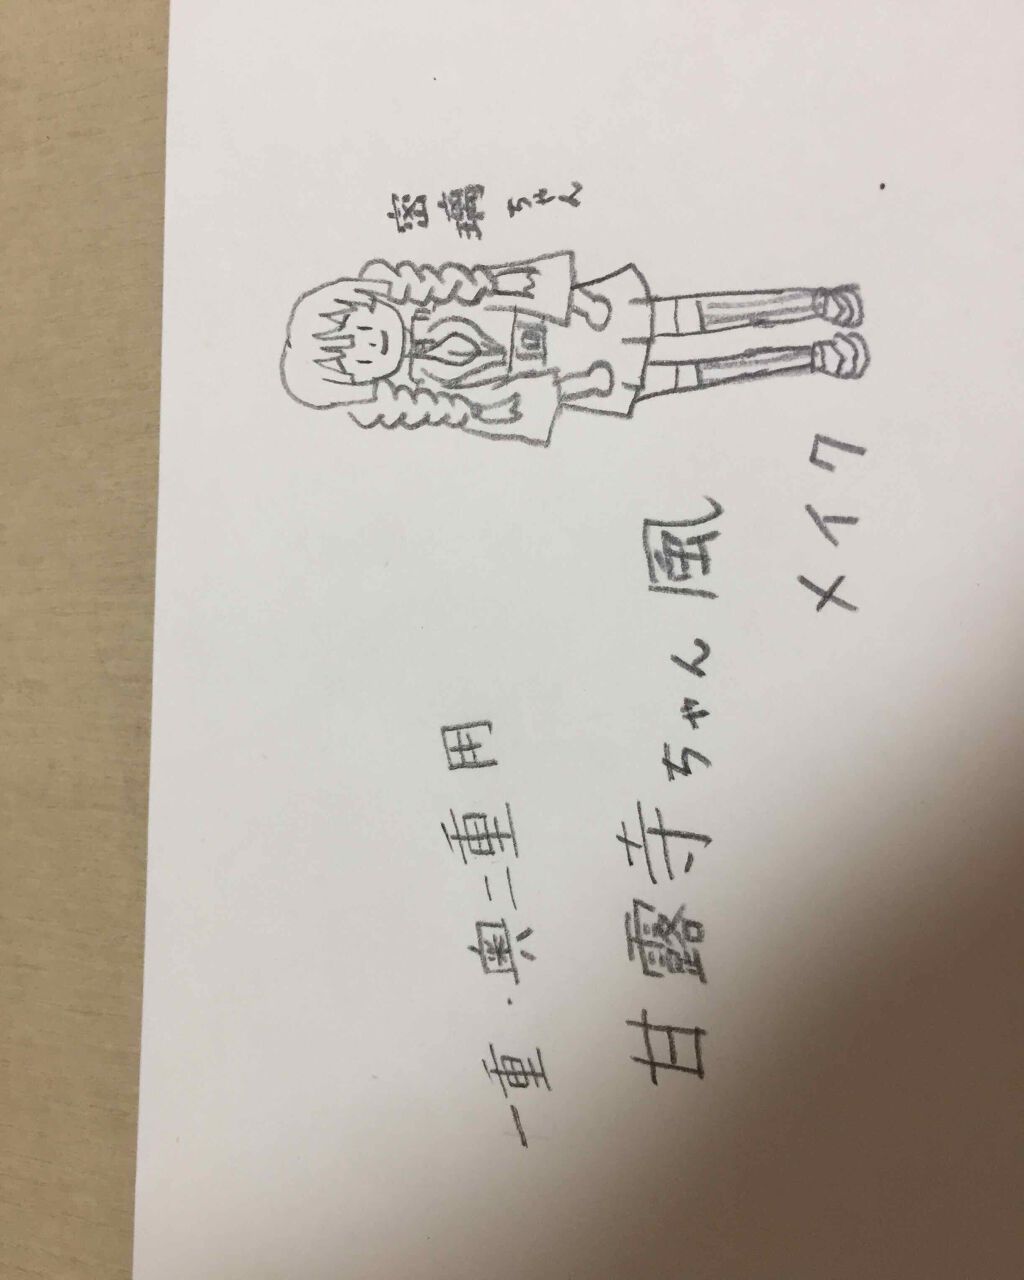 一重・奥二重用
甘露寺ちゃん風
メイク
蜜璃ちゃん